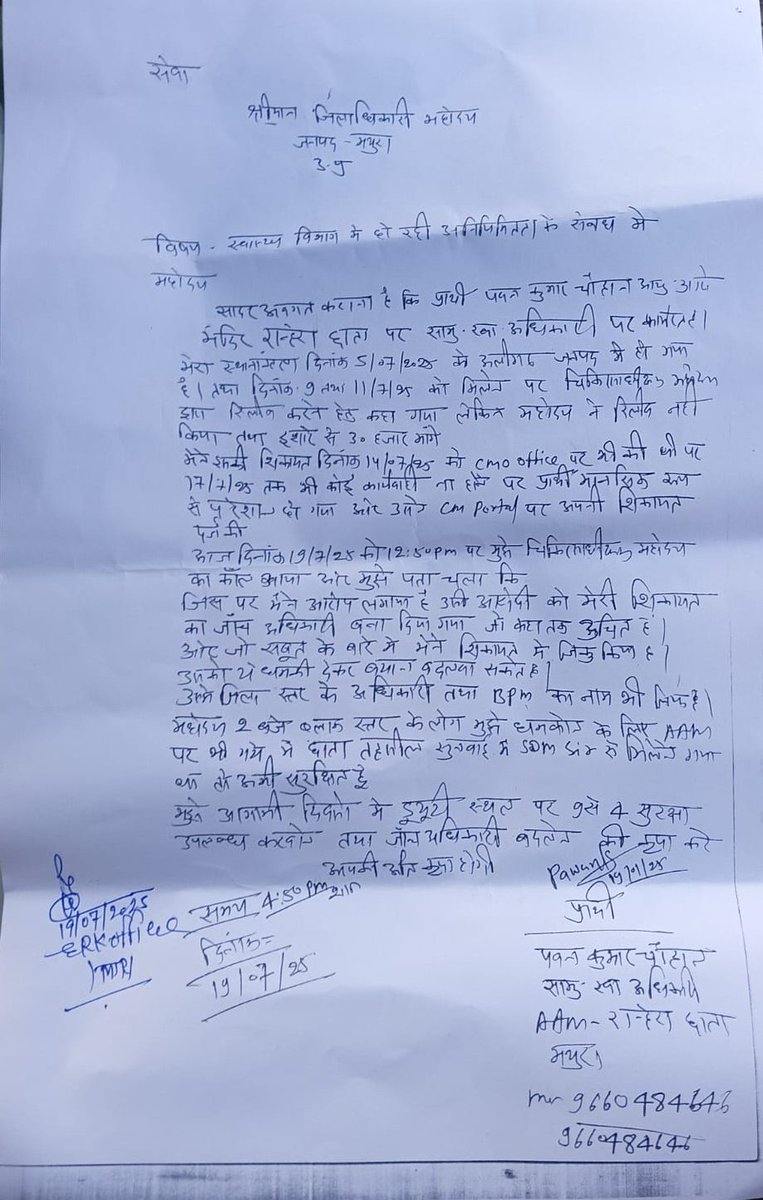 सेवा
श्रीमान जिलाधिकारी महोदय
जनपद - मथुरा
उ.प्र
विषय - स्वास्थ्य विभाग मे हो रही अनियिमितता के संबध मे
महोदय
सादर अवगत कराना है कि प्रार्थी पवन कुमार चौहान आयु. आरो
मंदिर रान्हेरा छाता पर सामु. स्वा अधिकारी पर कार्यरत है।
मेरा स्थानांतरण दिनांक 5/07/2025 को अलीगढ जनपद मे हो गया
है। तथा दिनांक 9 तथा 11/7/25 को मिलने पर चिकित्साधीक्षक महोदय
द्वारा रिलीव करने हेतु कहा गया लेकिन महोदय ने रिलीव नही
किया तथा इशारे से 30 हजार मांगे
मेने इसकी शिकायत दिनांक 14/07/25 को cmo office पर भी की थी पर
17/7/25 तक भी कोई कार्यवाही ना होने पर प्रार्थी मानसिक रूप
से परेशान हो गया और उसने cm Portal पर अपनी शिकायत
दर्ज की
आज दिनांक 19/7/25 को 12:50pm पर मुझे चिकित्साधीक्षक महोदय
का कॉल आया और मुझे पता चला कि
जिस पर मैने आरोप लगाया है उसी आरोपी को मेरी शिकायत
का जाँच अधिकारी बना दिया गया जो कहा तक उचित है।
और जो सबूत के बारे मे मेने शिकायत मे जिक्र किया है।
उनको ये धमकी देकर बयान बदलवा सकते है।
उसमे जिला स्तर के अधिकारी तथा BPM का नाम भी लिया है।
महोदय 2 बजे ब्लाक स्तर के लोग मुझे धमकाने के लिए AAM
पर भी गये मे छाता तहसील सुनवाई मे SDM sir से मिलने गया
था तो अभी सुरक्षित हूँ
मुझे आगामी दिवसो मे ड्यूटी स्थल पर 9 से 4 सुरक्षा
उपलब्ध करवाने तथा जाँच अधिकारी बदलने की कृपा करे
आपकी अति कृपा होगी
Pawan
19/7/25
प्रार्थी
पवन कुमार चौहान
सामु. स्वा अधिकारी
AAM - रान्हेरा छाता
मथुरा
mn 9660484646
9660484646
समय 4:50 pm शाम
दिनांक =
19/07/25
19/07/2025
ERK office
MTR